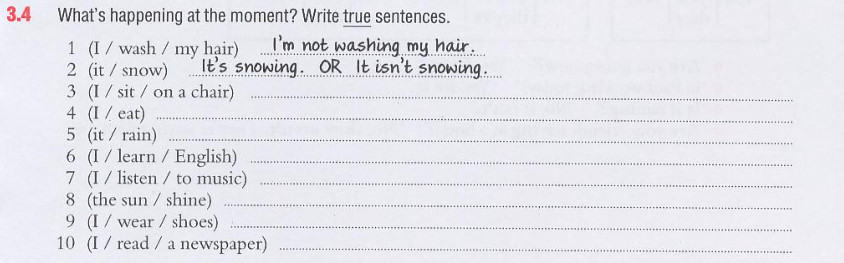 3.4 What's happening at the moment? Write true sentences.
1 (I / wash / my hair) I'm not washing my hair.
2 (it / snow) It's snowing. OR It isn't snowing.
3 (I / sit / on a chair)
4 (I / eat)
5 (it / rain)
6 (I / learn / English)
7 (I / listen / to music)
8 (the sun / shine)
9 (I / wear / shoes)
10 (I / read / a newspaper)